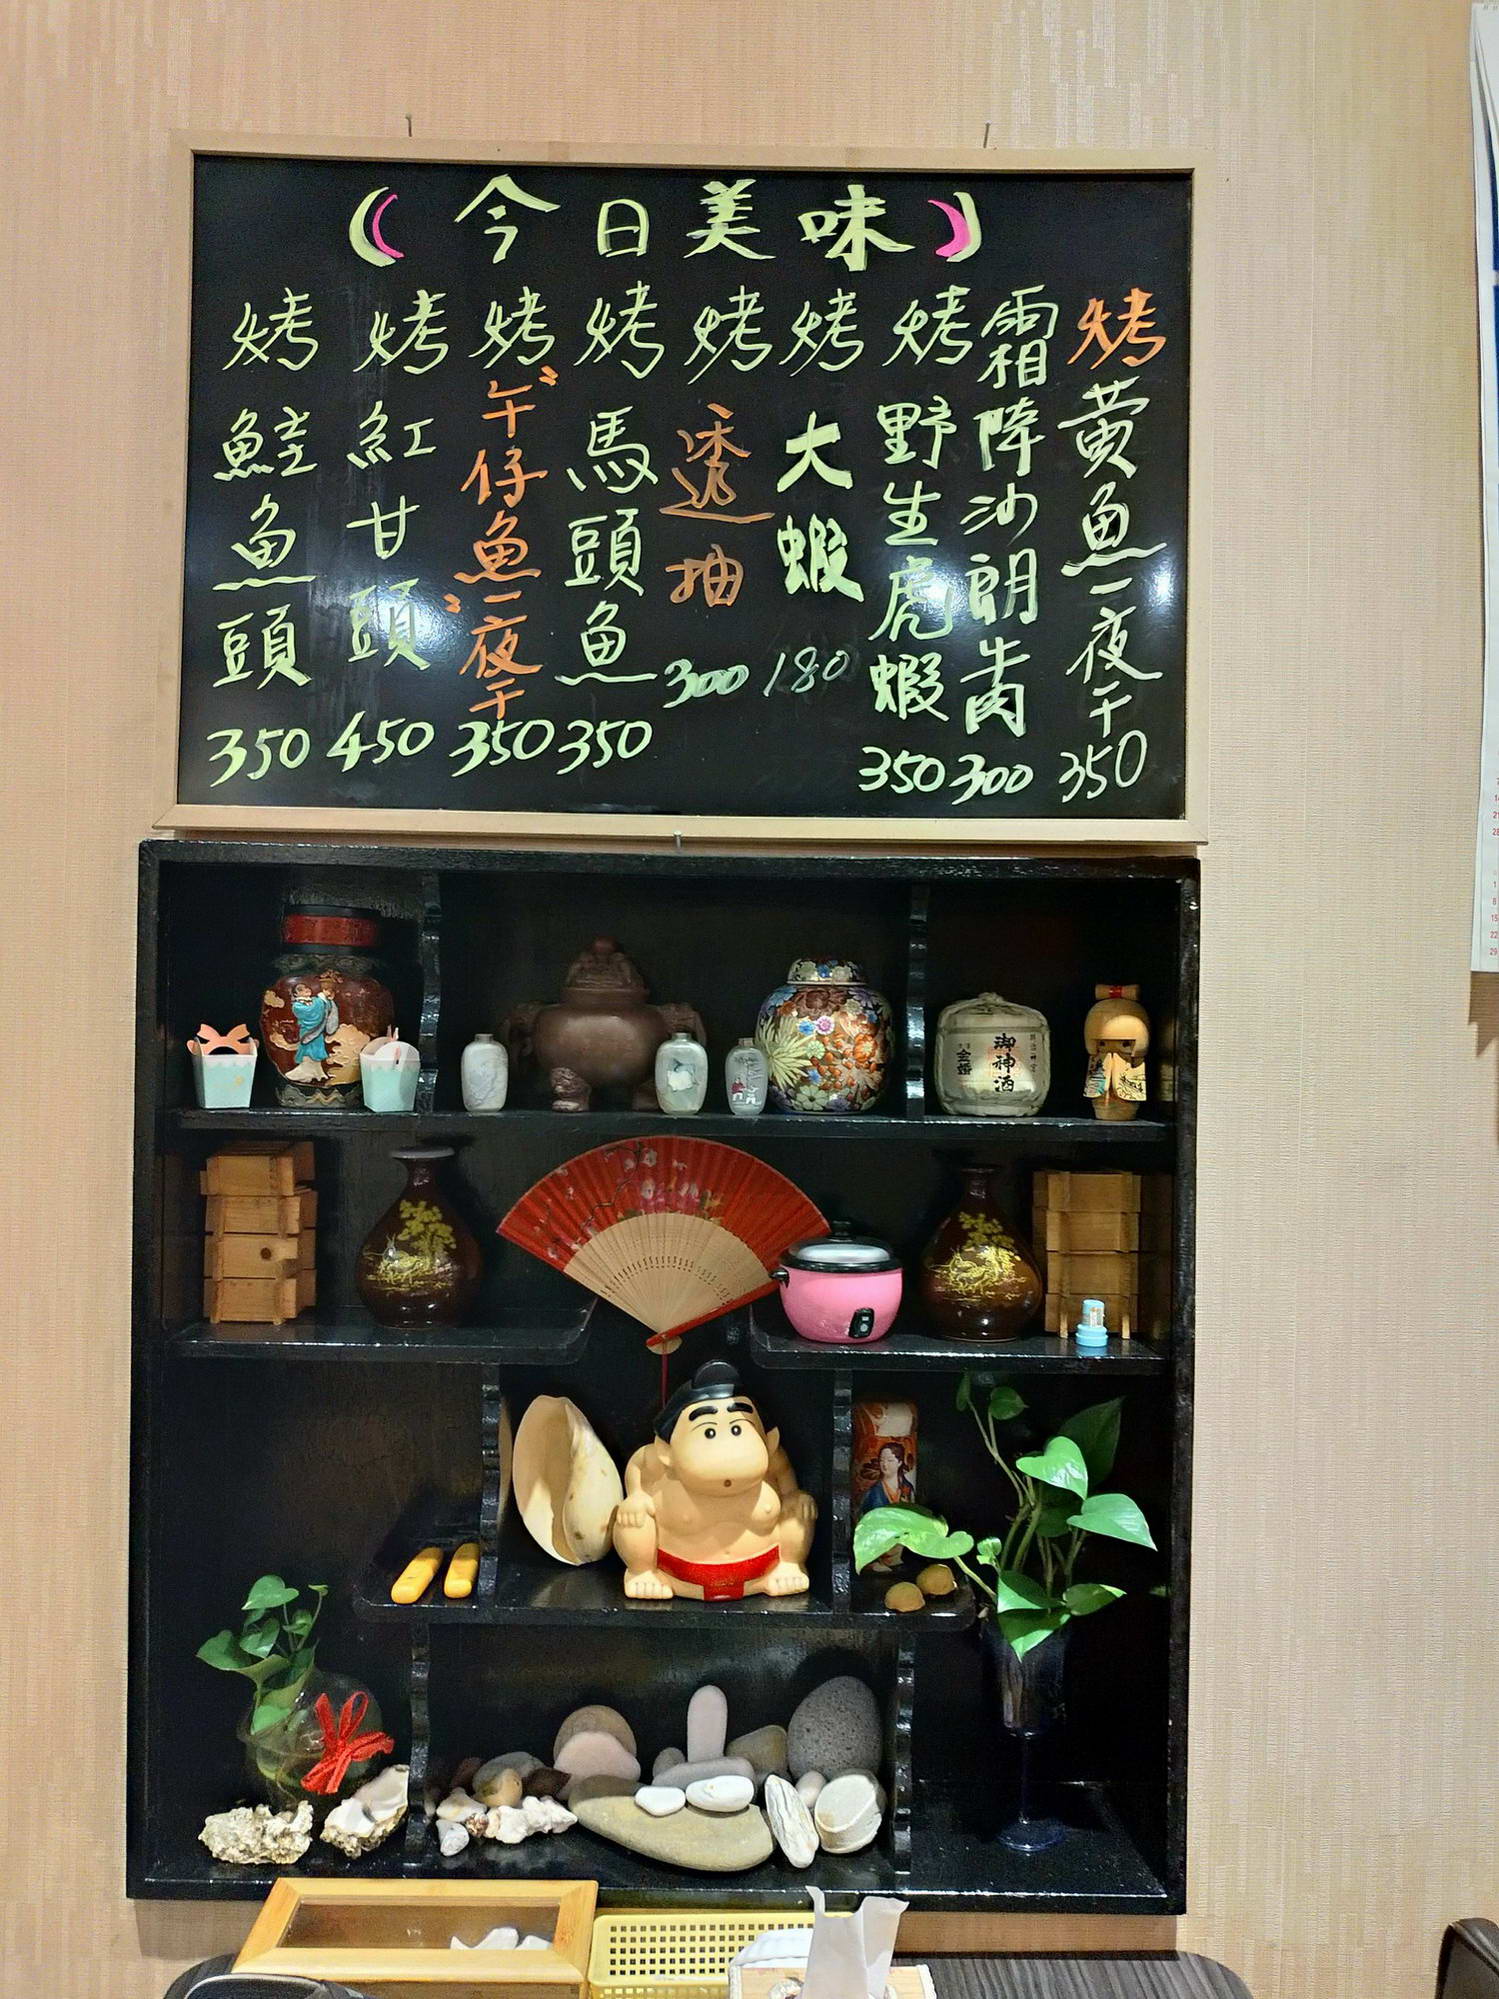 今日美味
烤黃魚一夜干 350
霜降沙朗牛肉 300
烤野生虎蝦 350
烤大蝦 180
烤透抽 300
烤馬頭魚 350
烤午仔魚一夜干 350
烤紅甘頭 450
烤鮭魚頭 350
御神酒